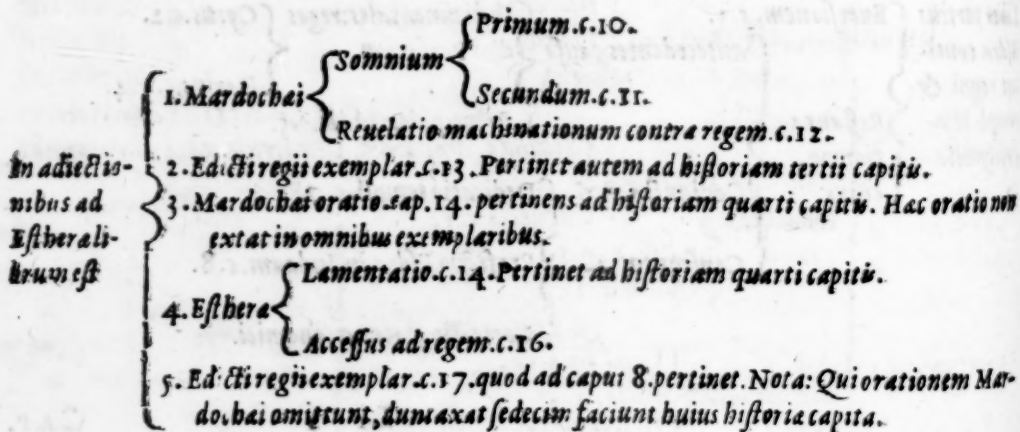 In adiectio-
nibus ad
Estheræ li-
brum est
1. Mardochai
Somnium
Primum.c.10.
Secundum.c.11.
Reuelatio machinationum contra regem.c.12.
2. Edicti regii exemplar.c.13. Pertinet autem ad historiam tertii capitis.
3. Mardochai oratio.cap.14. pertinens ad historiam quarti capitis. Hac oratio non
extat in omnibus exemplaribus.
4. Esthera
Lamentatio.c.14. Pertinet ad historiam quarti capitis.
Accessus ad regem.c.16.
5. Edicti regii exemplar.c.17. quod ad caput 8. pertinet. Nota: Qui orationem Mar-
dochai omittunt, dumtaxat sedecim faciunt huius historia capita.